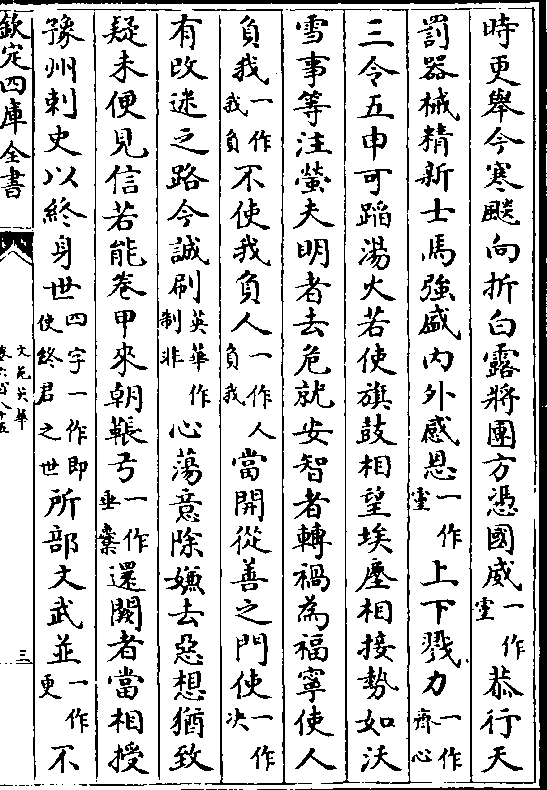 時更舉今寒颷向折白露將團方憑國威一作靈恭行天
罰器械精新士馬強盛内外感恩一作靈上下戮力一作齊心
三令五申可蹈湯火若使旗鼓相望埃塵相接勢如沃
雪事等注螢夫明者去危就安智者轉禍為福寧使人
負我一作我負不使我負人一作人負我當開從善之門使一作决
有改迷之路今誠刷英華作制非心蕩意除嫌去惡想猶致
疑未便見信若能卷甲來朝韔弓一作垂櫜還闕者當相授
豫州刺史以終身世四字一作即使終君之世所部文武並一作更不
欽定四庫全書
文苑英華
卷六百八十五
三